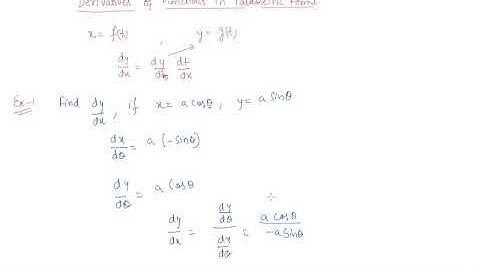 Derivatives of Functions in Parametric Forms
x = f(t) , y = g(t)
dy/dx = dy/dt dt/dx
Ex-1 Find dy/dx, if x = a cosθ, y = a sinθ
dx/dθ = a (-sinθ)
dy/dθ = a cosθ
dy/dx = (dy/dθ)/(dy/dθ) = a cosθ/-a sinθ